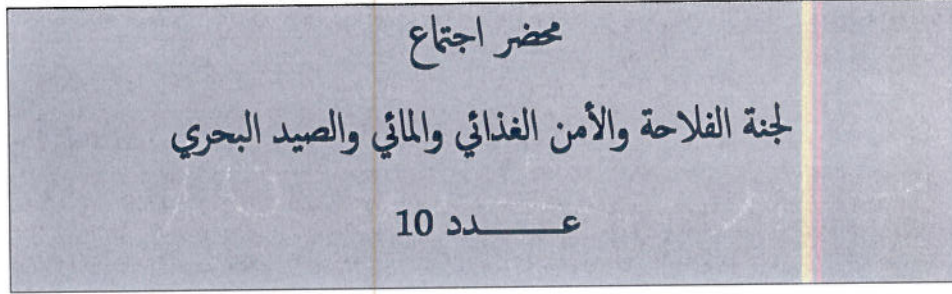 محضر اجتماع
لجنة الفلاحة والأمن الغذائي والمائي والصيد البحري
عــــــدد 10